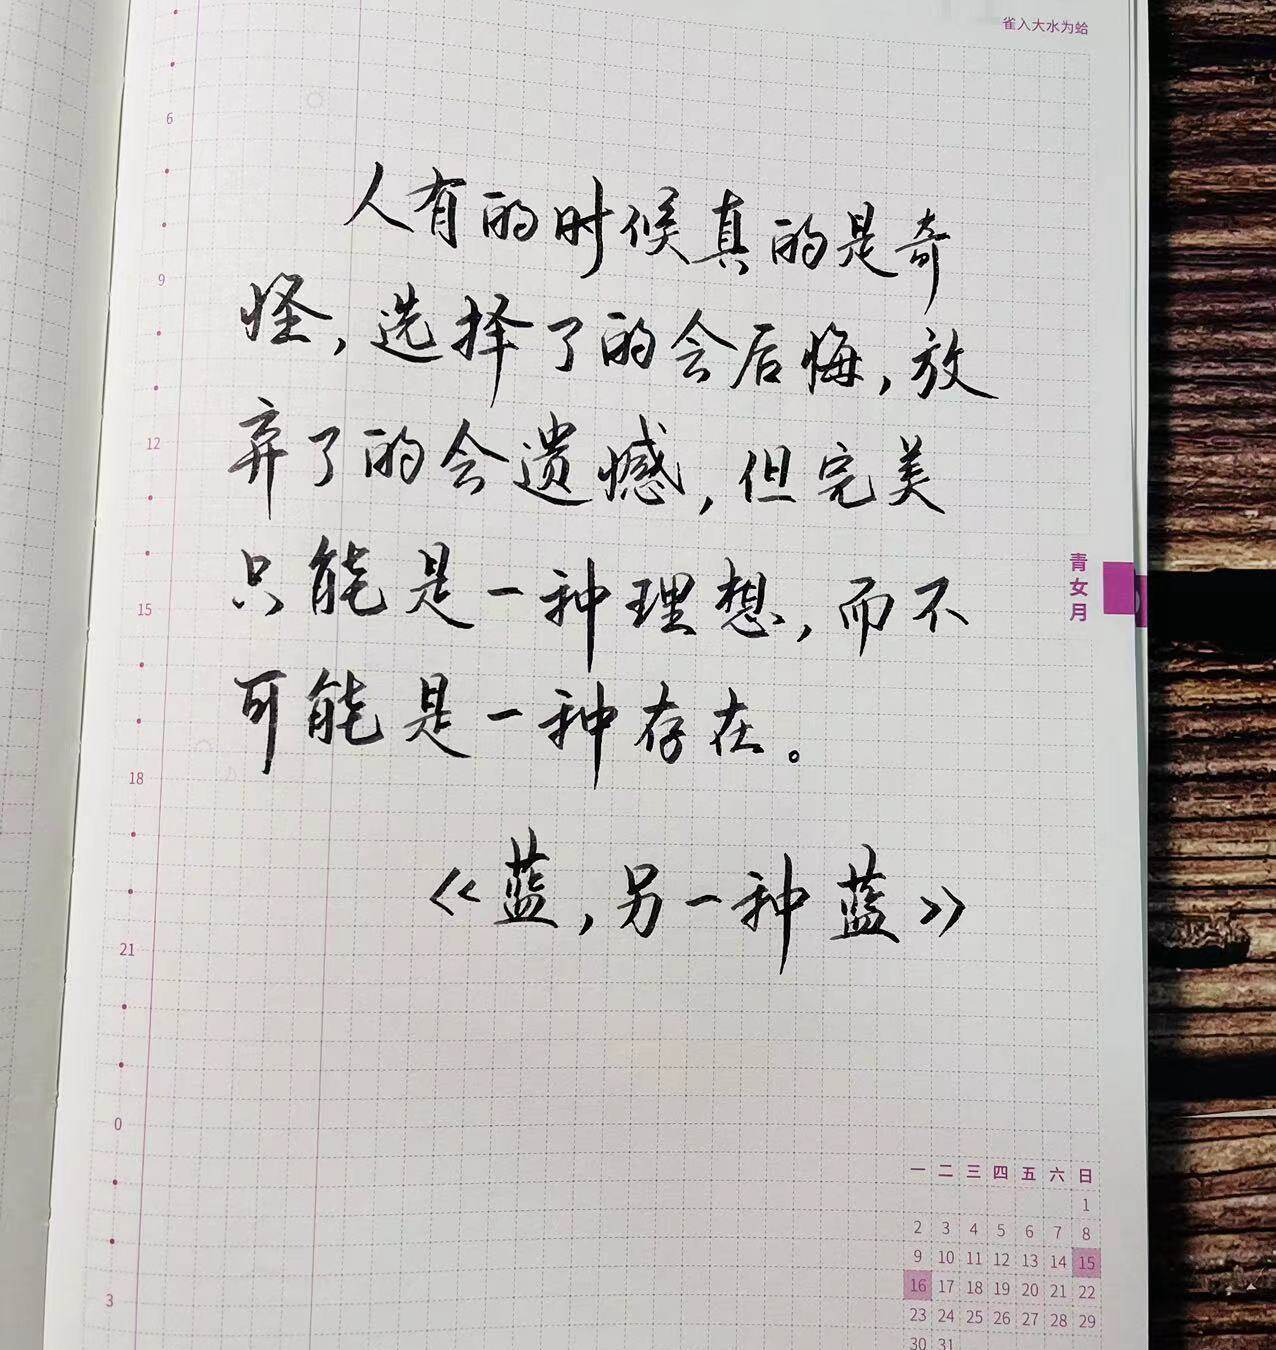 雀入大水为蛤
6
人有的时候真的是奇
9
怪，选择了的会后悔，放
12
弃了的会遗憾，但完美
青女月
只能是一种理想，而不
15
可能是一种存在。
18
《蓝，另一种蓝》
21
0
一 二 三 四 五 六 日
1
2 3 4 5 6 7 8
9 10 11 12 13 14 15
16 17 18 19 20 21 22
23 24 25 26 27 28 29
3
30 31